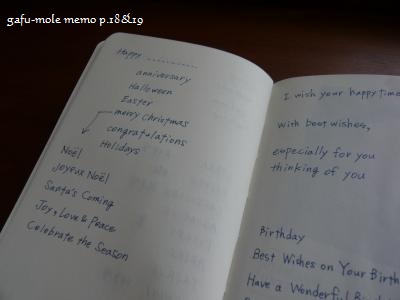 gafu-mole memo p.18&19
Happy ............
anniversary
Halloween
Easter
merry Christmas
congratulations
Holidays
Noël
Joyeux Noël
Santa's Coming
Joy, Love & Peace
Celebrate the Season
I wish your happy time
with best wishes,
especially for you
thinking of you
Birthday
Best Wishes on Your Birth
Have a Wonderful Birthd